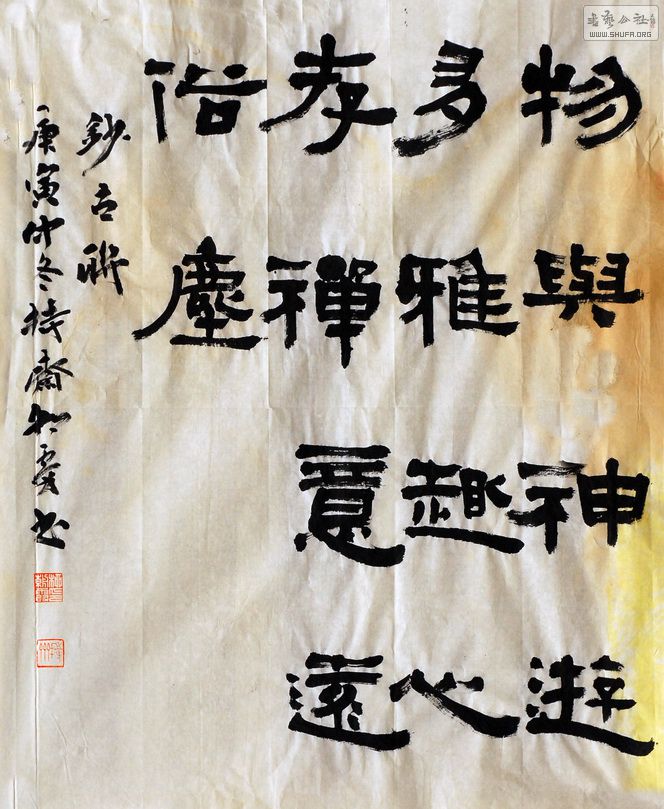 書藝公社
WWW.SHUFA.ORG
物與神遊
多雅趣心
存禪意遠
俗塵
鈔古聯
庚寅仲冬 齋 书